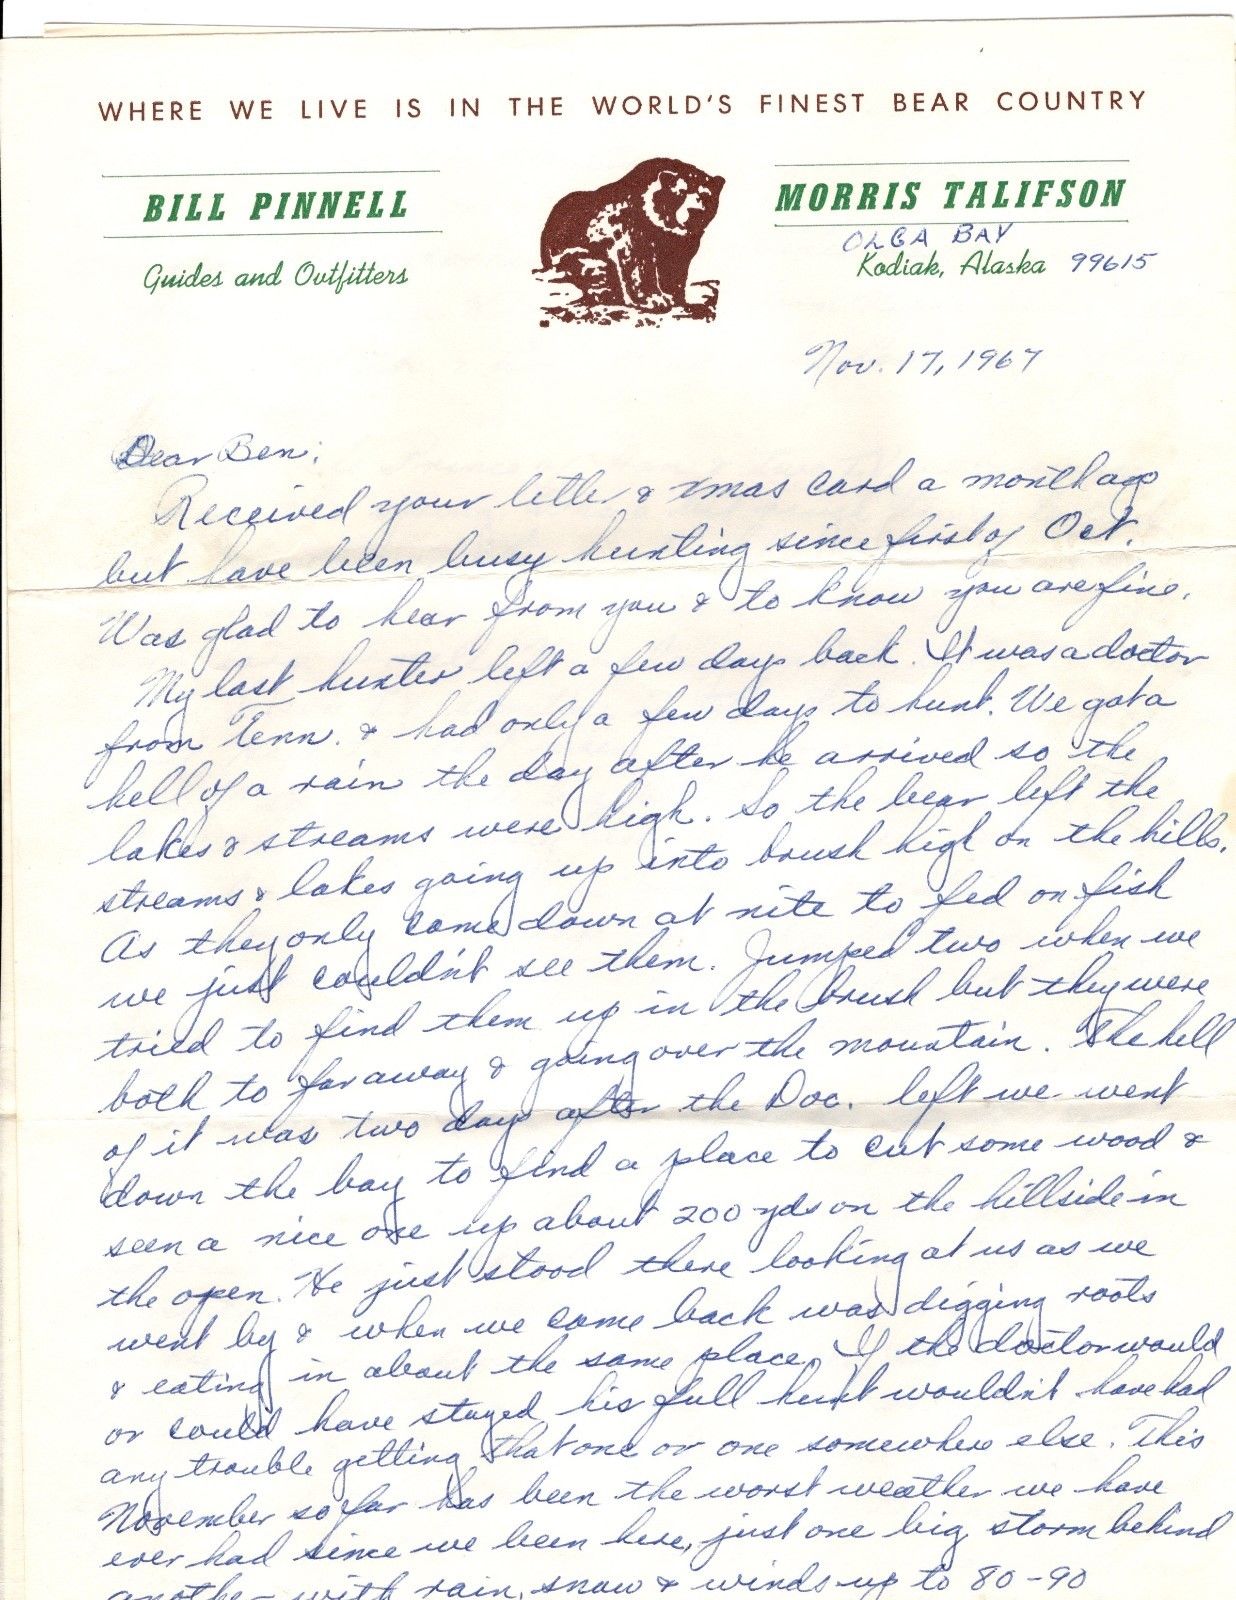 WHERE WE LIVE IS IN THE WORLD'S FINEST BEAR COUNTRY
BILL PINNELL
Guides and Outfitters
MORRIS TALIFSON
OLGA BAY
Kodiak, Alaska 99615
Nov. 17, 1967
Dear Ben;
Received your letter & xmas card a month ago
but have been busy hunting since first of Oct.
Was glad to hear from you & to know you are fine.
My last hunter left a few days back. It was a doctor
from Tenn. & had only a few days to hunt. We got a
hell of a rain the day after he arrived so the
lakes & streams were high. So the bear left the
streams & lakes going up into brush high on the hills.
As they only come down at nite to fed on fish
we just couldn't see them. Jumped two when we
tried to find them up in the brush but they were
both to far away & going over the mountain. The hell
of it was two days after the Doc. left we went
down the bay to find a place to cut some wood &
seen a nice one up about 200 yds on the hillside in
the open. He just stood there looking at us as we
went by & when we come back was digging roots
& eating in about the same place. If the doctor would
or could have stayed his full hunt wouldn't have had
any trouble getting that one or one somewhere else. This
November so far has been the worst weather we have
ever had since we been here, just one big storm behind
another with rain, snow & winds up to 80-90